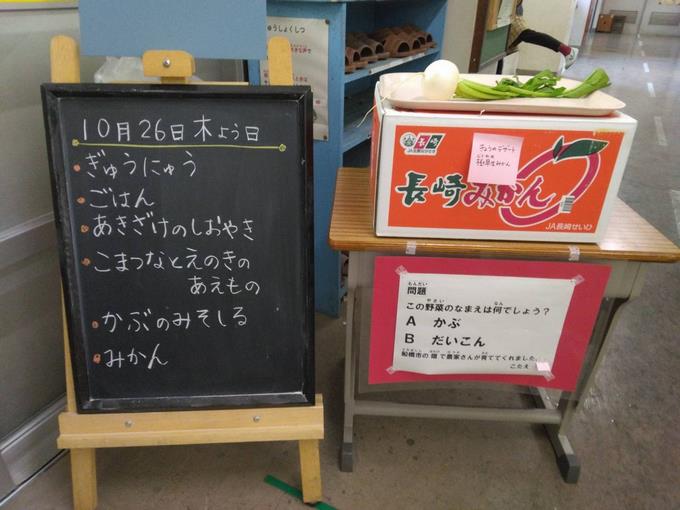 10月26日木よう日
・ぎゅうにゅう
・ごはん
・あきざけのしおやき
・こまつなとえのきの
あえもの
・かぶのみそしる
・みかん
うしょくしつ
JA長崎せいひ
きょうのデザート
極早生みかん
長崎みかん
JA長崎せいひ
もんだい
問題
やさい なん
この野菜のなまえは何でしょう？
A かぶ
B だいこん
船橋市の畑で農家さんが育ててくれました
こたえ